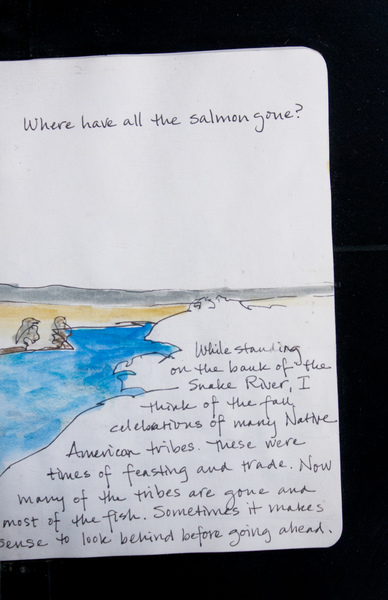 Where have all the salmon gone?
While standing
on the bank of the
Snake River, I
think of the fall
celebrations of many Native
American tribes. These were
times of feasting and trade. Now
many of the tribes are gone and
most of the fish. Sometimes it makes
sense to look behind before going ahead.